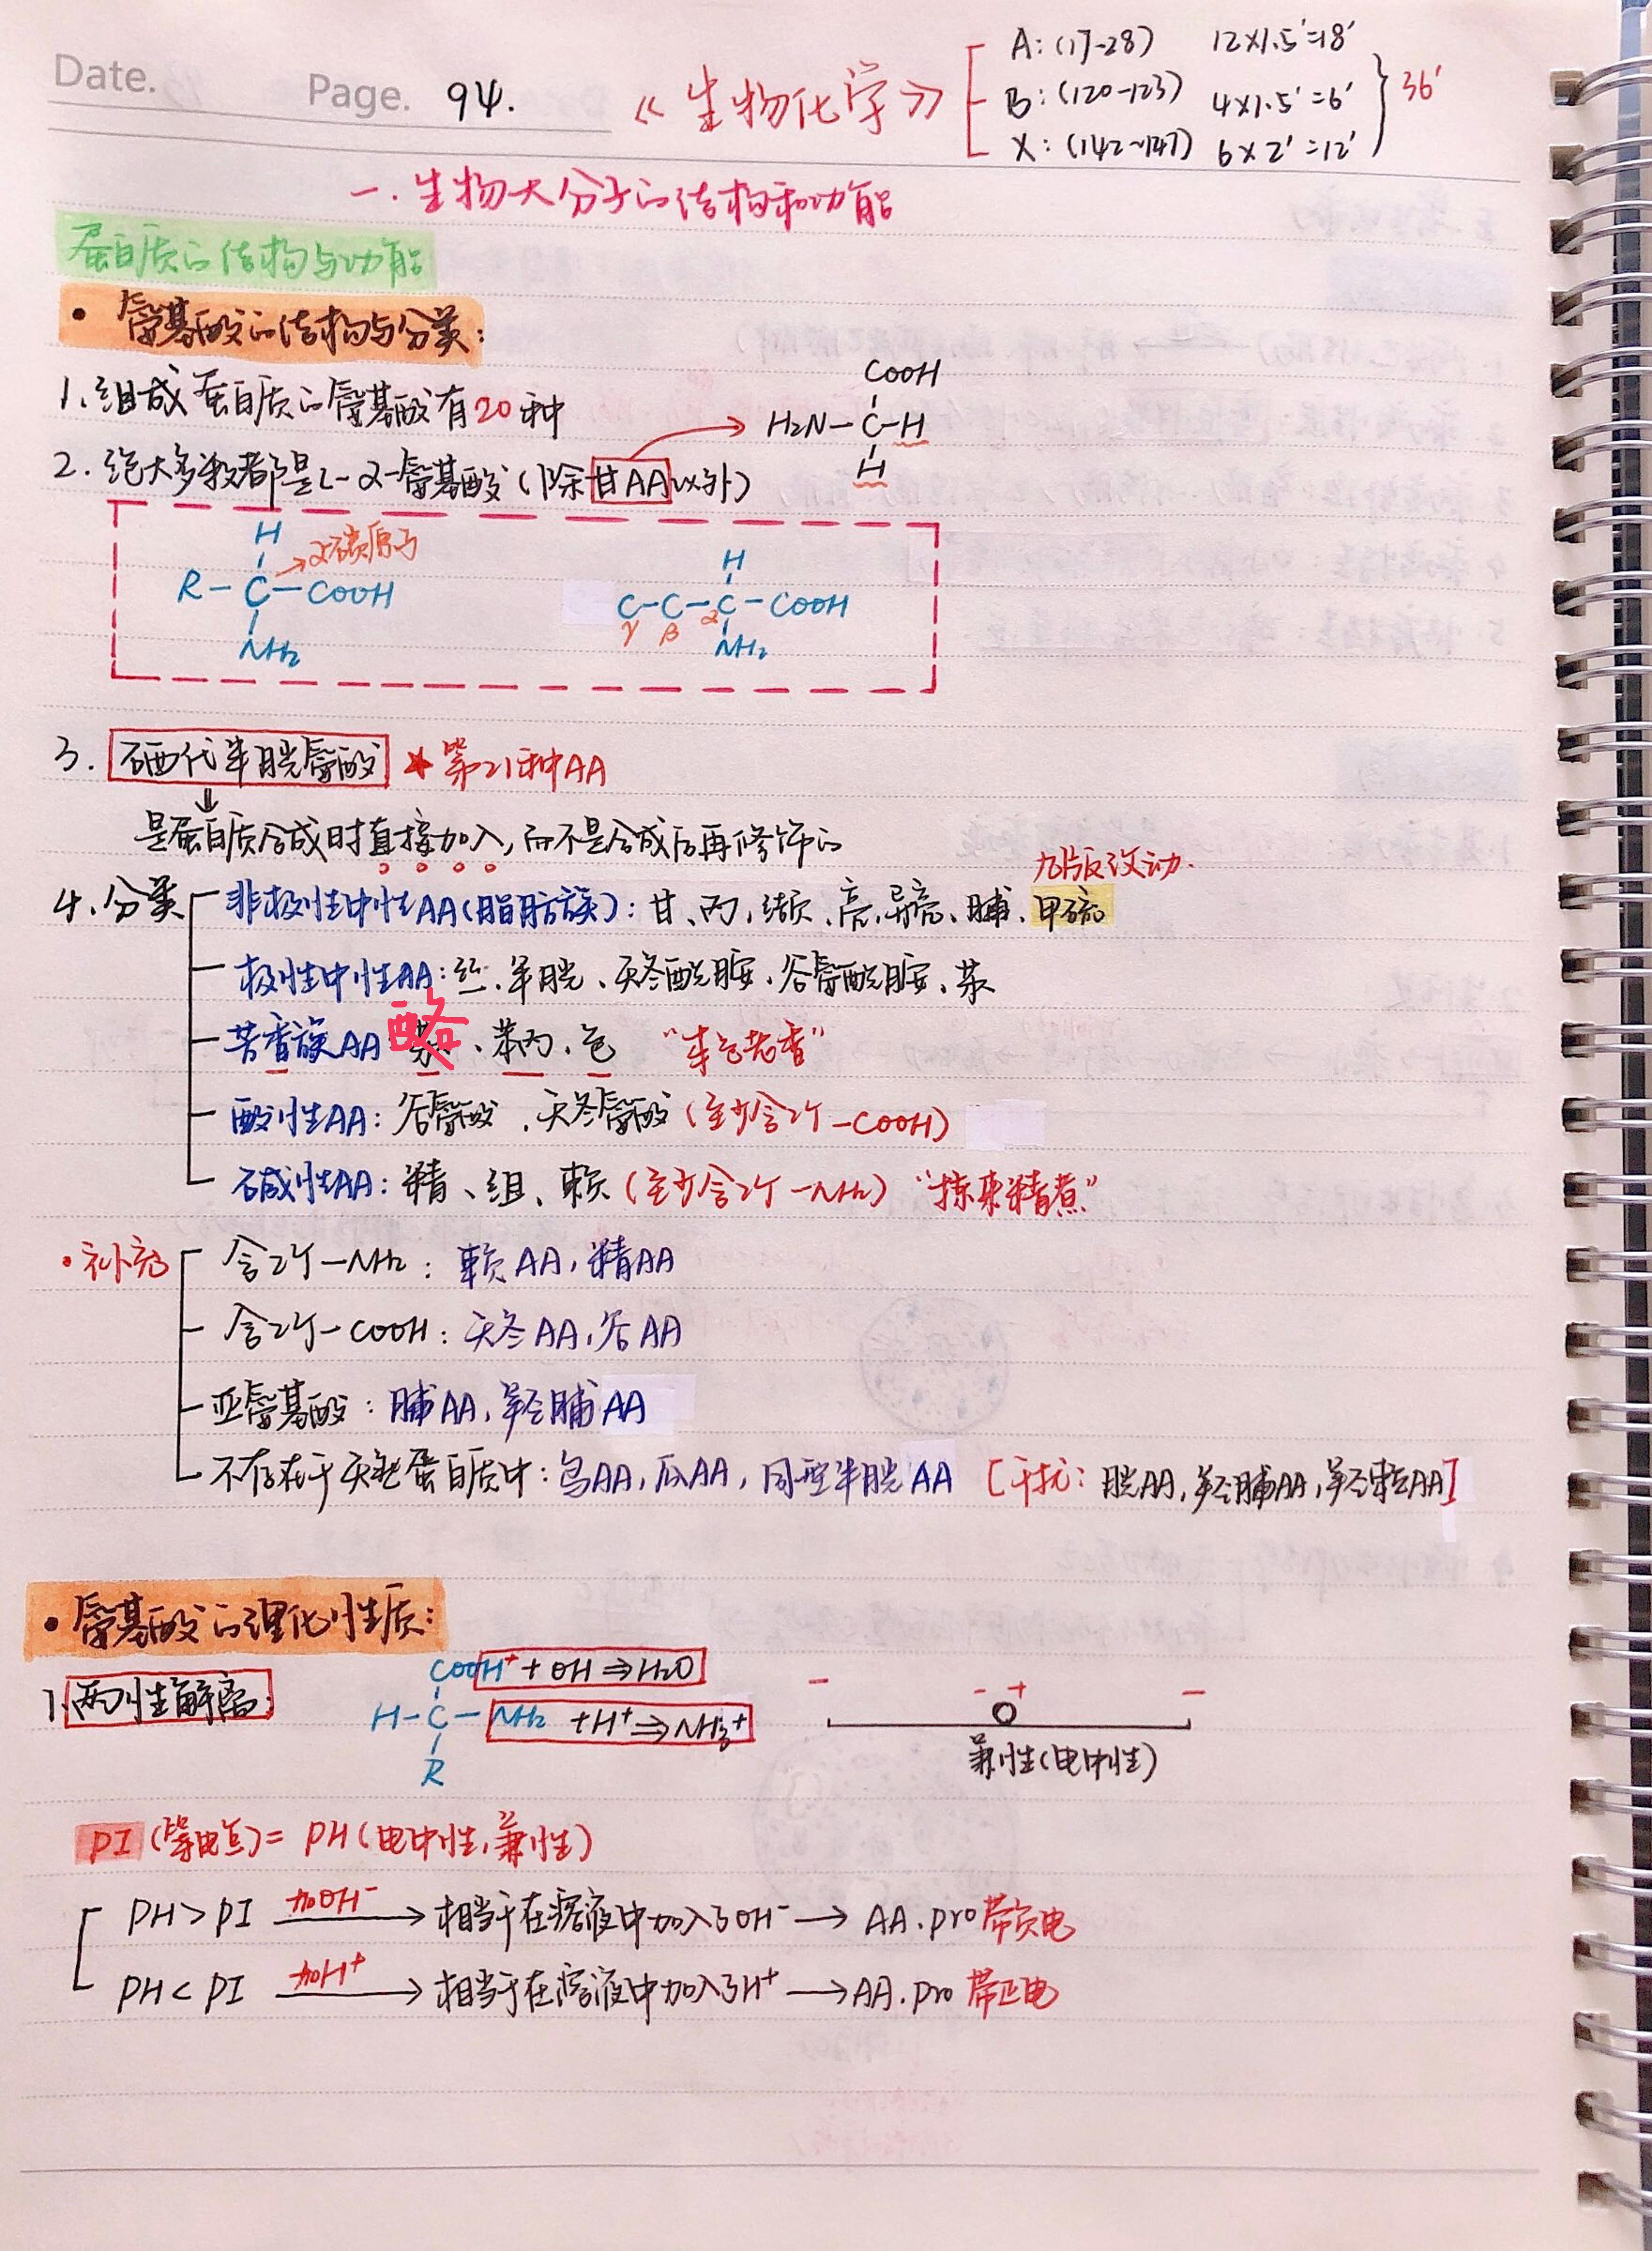 Date. Page. 94.
《生物化学》
A:(17-28) 12×1.5'=18'
B:(120-123) 4×1.5'=6'
X:(142~147) 6×2'=12'
36'
一.生物大分子的结构和功能
蛋白质的结构与功能
• 氨基酸的结构与分类:
1.组成蛋白质的氨基酸有20种
COOH
H2N-C-H
H
2.绝大多数都是L-α-氨基酸(除甘AA以外)
H
α碳原子
R-C-COOH
NH2
H
C-C-C-COOH
γ β α
NH2
3. 硒代半胱氨酸 ★第21种AA
是蛋白质合成时直接加入,而不是合成后再修饰的
九版改动.
4.分类 非极性中性AA(脂肪族):甘、丙、缬、亮、异亮、脯、甲硫
极性中性AA:丝、半胱、天冬酰胺、谷氨酰胺、苏
芳香族AA 酪、苯丙、色 "
酸性AA:谷氨酸、天冬氨酸(至少含2个-COOH)
碱性AA:精、组、赖(至少含2个-NH2) "拣来精煮"
•补充 含2个-NH2:赖AA,精AA
含2个-COOH:天冬AA,谷AA
亚氨基酸:脯AA,羟脯AA
不存在于天然蛋白质中:鸟AA,瓜AA,同型半胱AA [干扰:胱AA,羟脯AA,羟赖AA]
• 氨基酸的理化性质:
1.两性解离:
COOH⁺+OH⇒H2O
H-C-NH2 +H⁺⇒NH3⁺
R
- - + -
兼性(电中性)
PI(等电点)=PH(电中性,兼性)
PH>PI 加OH⁻ → 相当于在溶液中加入了OH⁻ → AA.pro带负电
PH<PI 加H⁺ → 相当于在溶液中加入了H⁺ → AA.pro带正电